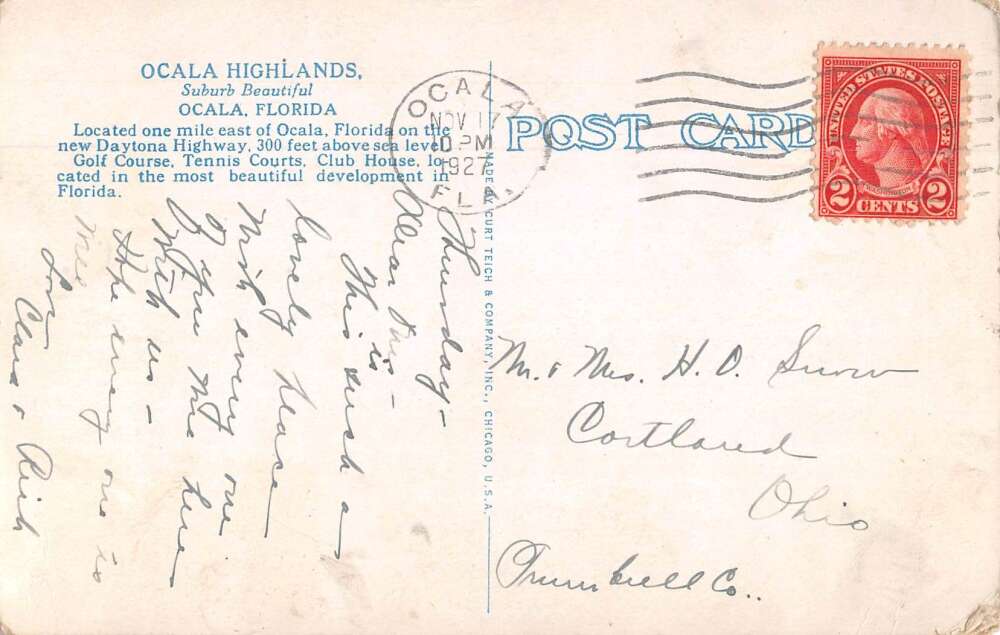 OCALA HIGHLANDS,
Suburb Beautiful
OCALA, FLORIDA
Located one mile east of Ocala, Florida on the
new Daytona Highway, 300 feet above sea level
Golf Course, Tennis Courts, Club House, lo-
cated in the most beautiful development in
Florida.
Thursday-
Dear
This is such a
lovely place
Wish every one
of you were here
with us -
Hope every one is
well
Love
Clara & Rich
MADE BY CURT TEICH & COMPANY, INC., CHICAGO, U.S.A.
POST CARD
OCALA
NOV 17
PM
1927
FLA.
UNITED STATES POSTAGE
WASHINGTON
2 CENTS 2
Mr. & Mrs. H. D. Snow
Cortland
Ohio
Trumbull Co..